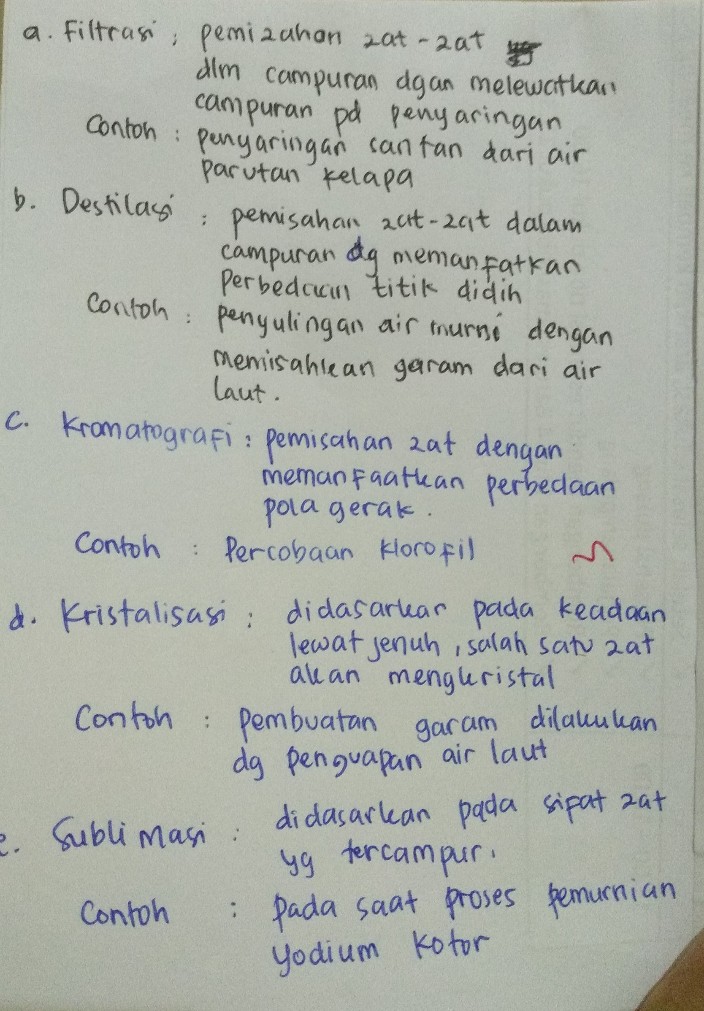 a. Filtrasi ; pemizahan zat-zat
dlm campuran dgan melewatkan
campuran pd penyaringan
Contoh : penyaringan santan dari air
parutan kelapa
b. Destilasi : pemisahan zat-zat dalam
campuran dg memanfatkan
perbedaan titik didih
Contoh : penyulingan air murni dengan
memisahkan garam dari air
laut.
c. Kromatografi : pemisahan zat dengan
memanfaatkan perbedaan
pola gerak.
Contoh : Percobaan klorofil
d. Kristalisasi : didasarkan pada keadaan
lewat jenuh, salah satu zat
akan mengkristal
Contoh : pembuatan garam dilakukan
dg penguapan air laut
e. Sublimasi : didasarkan pada sifat zat
yg tercampur.
Contoh : pada saat proses pemurnian
yodium kotor